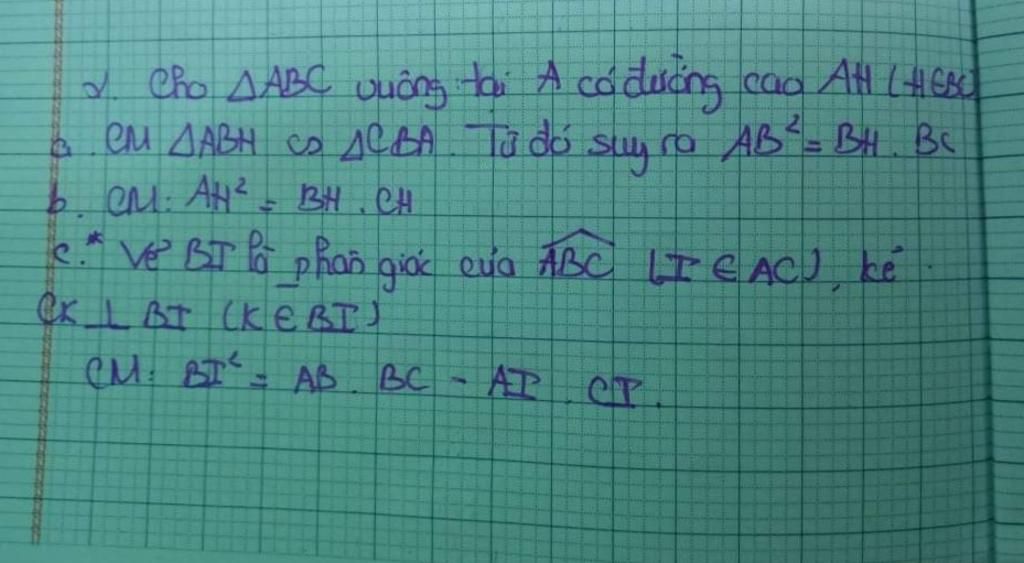 2. Cho △ABC vuông tại A có đường cao AH (H∈BC)
a. CM △ABH ∽ △CBA. Từ đó suy ra AB² = BH . BC
b. CM: AH² = BH . CH
c.* Vẽ BI là phân giác của \widehat{ABC} (I ∈ AC), kẻ
CK ⊥ BI (K ∈ BI)
CM: BI² = AB . BC - AI . CI.